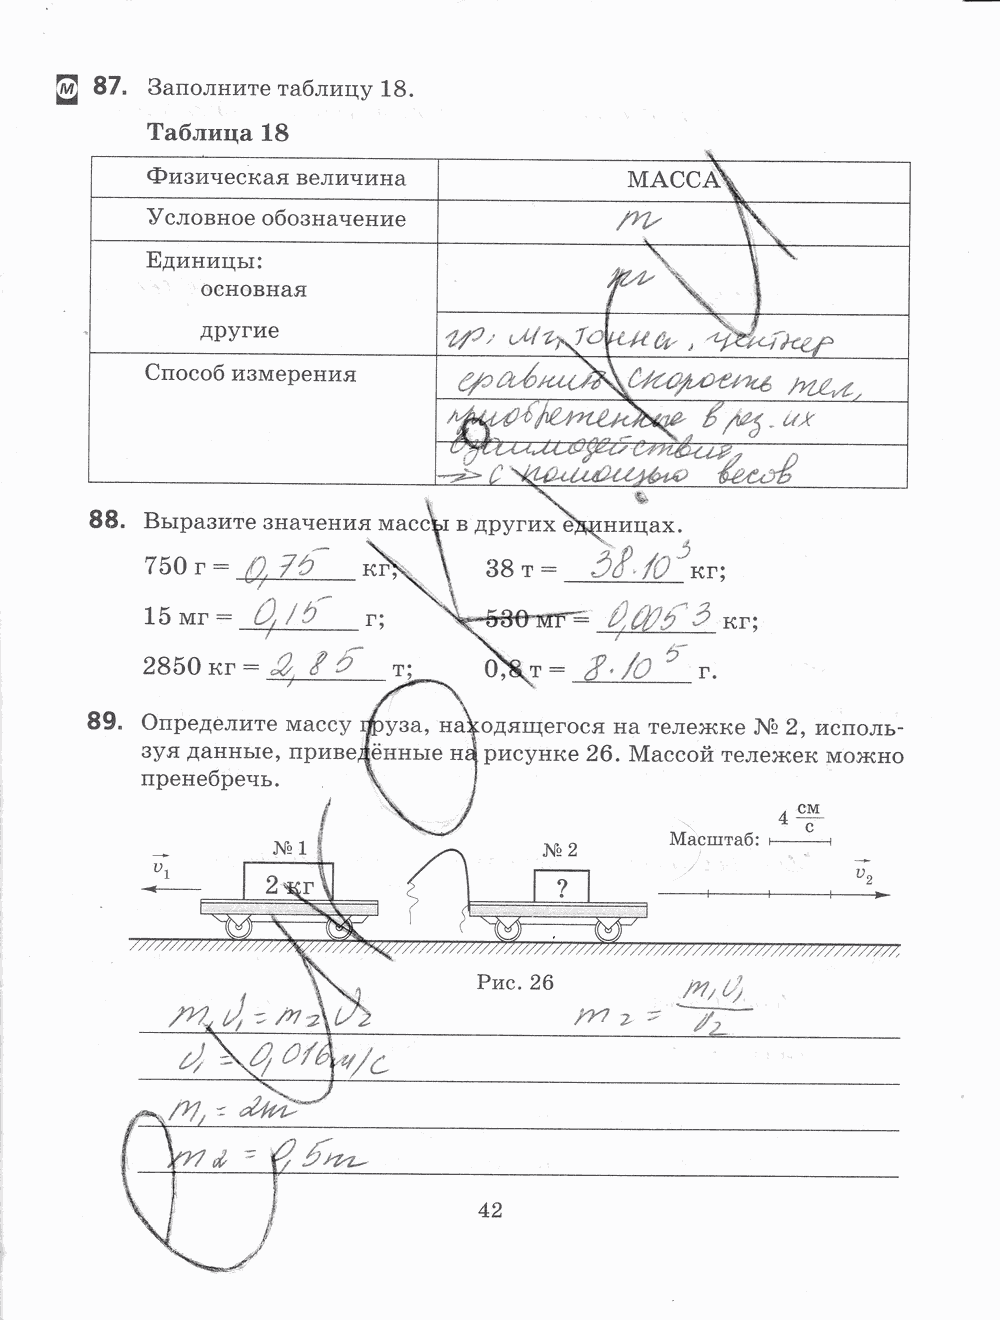 М 87. Заполните таблицу 18.
Таблица 18
Физическая величина МАССА
Условное обозначение m
Единицы:
основная кг
другие гр, мг, тонна, центнер
Способ измерения сравнить скорость тел,
приобретенные в рез. их
взаимодействия,
→ с помощью весов
88. Выразите значения массы в других единицах.
750 г = 0,75 кг; 38 т = 38·10³ кг;
15 мг = 0,15 г; 530 мг = 0,0053 кг;
2850 кг = 2,85 т; 0,8 т = 8·10⁵ г.
89. Определите массу груза, находящегося на тележке № 2, исполь-
зуя данные, приведённые на рисунке 26. Массой тележек можно
пренебречь.
Масштаб: 4 см/с
№ 1 № 2
v₁ 2 кг ? v₂
Рис. 26
m₁v₁ = m₂v₂ m₂ = m₁v₁/v₂
v₁ = 0,016 м/с
m₁ = 2кг
m₂ = 0,5кг
42